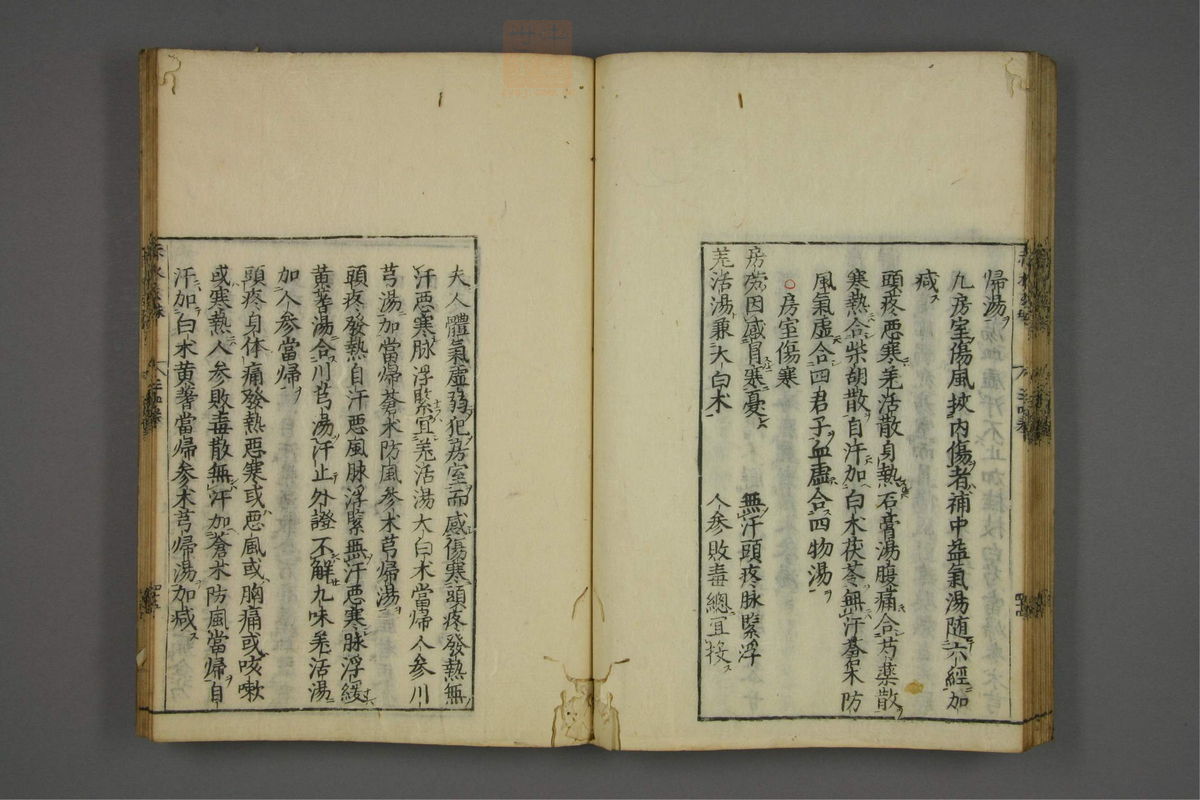 歸湯ヲ
凡房室傷風挾內傷者補中益氣湯隨六經加
減ス
頭疼惡寒羌活散身熱石膏湯腹痛合芍藥散
寒熱合柴胡散自汗加白朮茯苓無汗蒼朮防
風氣虛合四君子血虛合四物湯
○房室傷寒
房勞因感冒寒憂　無汗頭疼脉緊浮
羌活湯兼大白朮　人參敗毒總宜投
夫人體氣虛弱犯房室而感傷寒頭疼發熱無
汗惡寒脉浮緊宜羌活湯大白朮當歸人參川
芎湯加當歸蒼朮防風參朮芎歸湯
頭疼發熱自汗惡風脉浮緊無汗惡寒脉浮緩
黃蓍湯合川芎湯汗止外證不解九味羌活湯
加人參當歸
頭疼身体痛發熱惡寒或惡風或胸痛或咳嗽
或寒熱人參敗毒散無汗加蒼朮防風當歸自
汗加白朮黃蓍當歸參朮芎歸湯加減ス